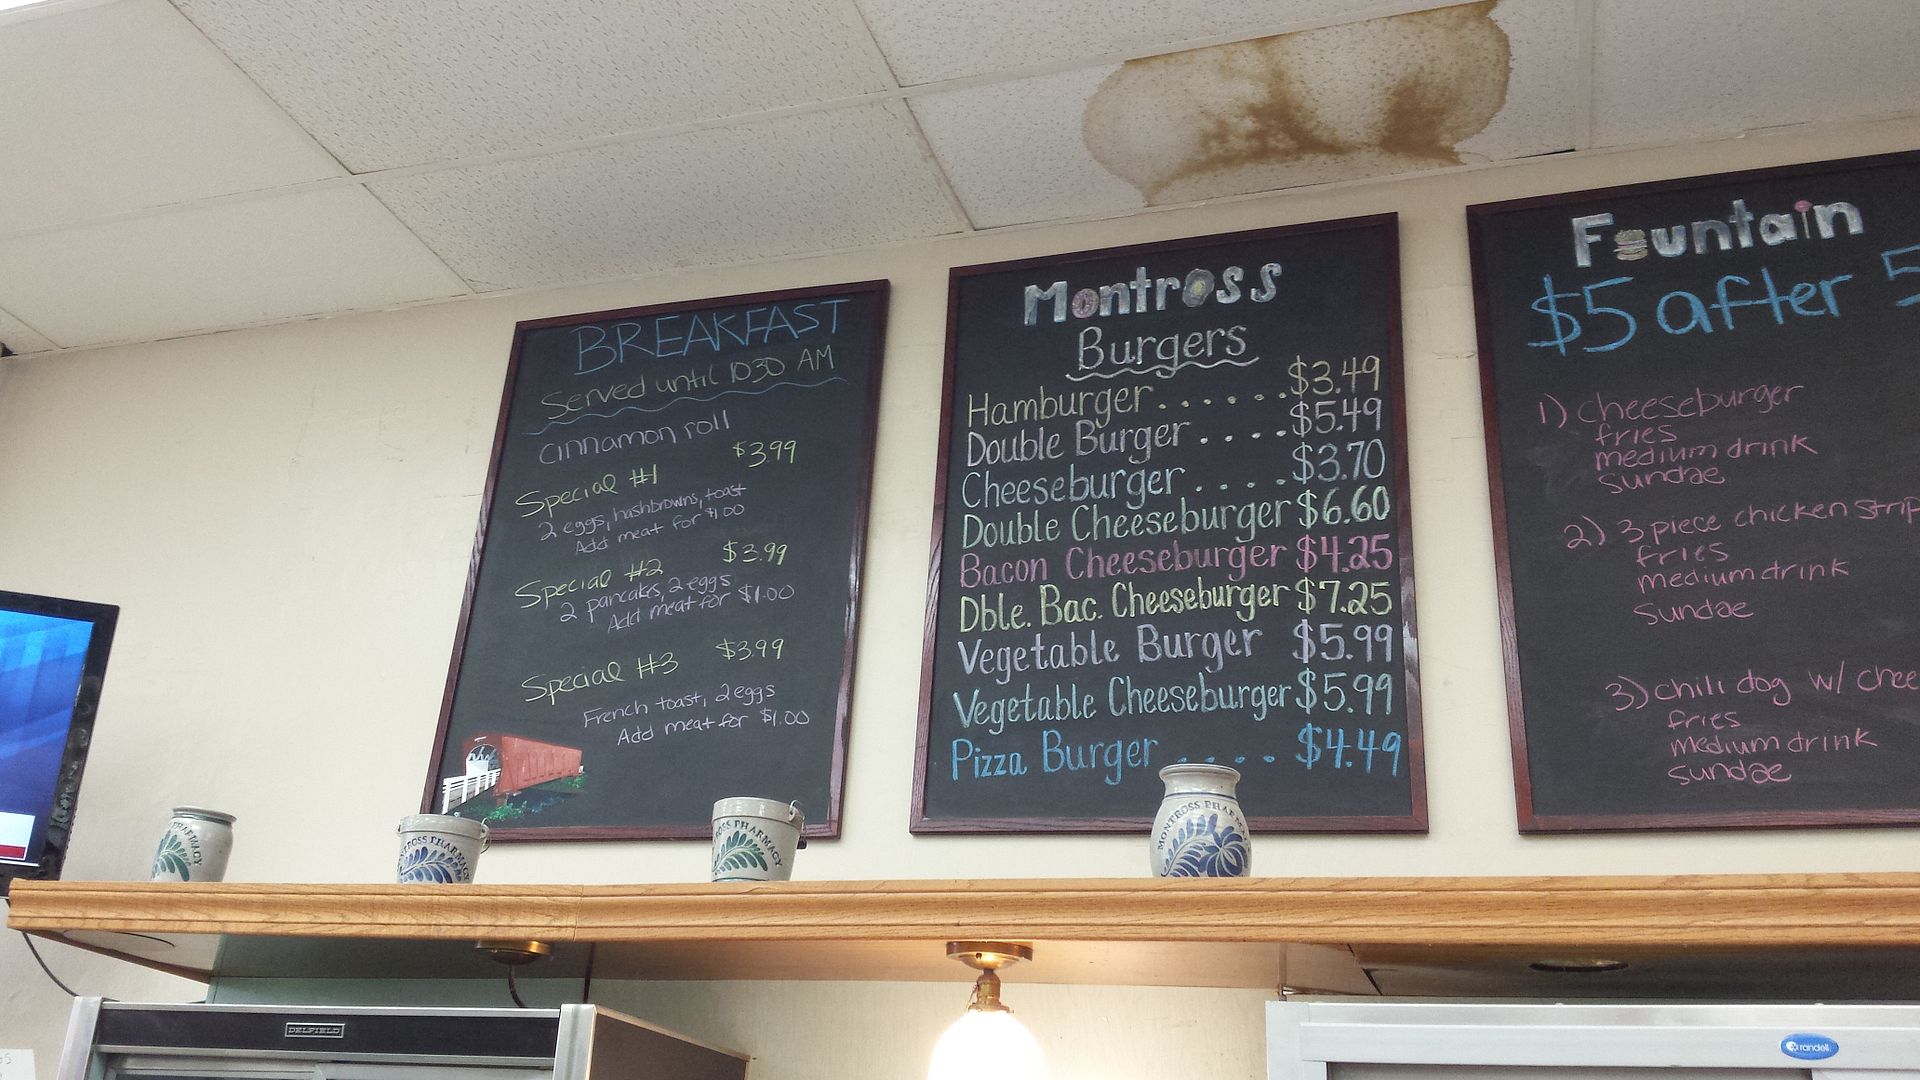 BREAKFAST
Served until 1030 AM
cinnamon roll
Special #1 $3.99
2 eggs, hashbrowns, toast
Add meat for $1.00
Special #2 $3.99
2 pancakes, 2 eggs
Add meat for $1.00
Special #3 $3.99
French toast, 2 eggs
Add meat for $1.00
Montross
Burgers
Hamburger......$3.49
Double Burger....$5.49
Cheeseburger....$3.70
Double Cheeseburger $6.60
Bacon Cheeseburger $4.25
Dble. Bac. Cheeseburger $7.25
Vegetable Burger $5.99
Vegetable Cheeseburger $5.99
Pizza Burger .... $4.49
Fountain
$5 after 5
1) cheeseburger
fries
medium drink
sundae
2) 3 piece chicken strip
fries
medium drink
sundae
3) chili dog w/ chee
fries
medium drink
sundae
PHARMACY
ROSS PHARMACY
ROSS PHARMACY
MONTROSS PHARMA
DELFIELD
randell